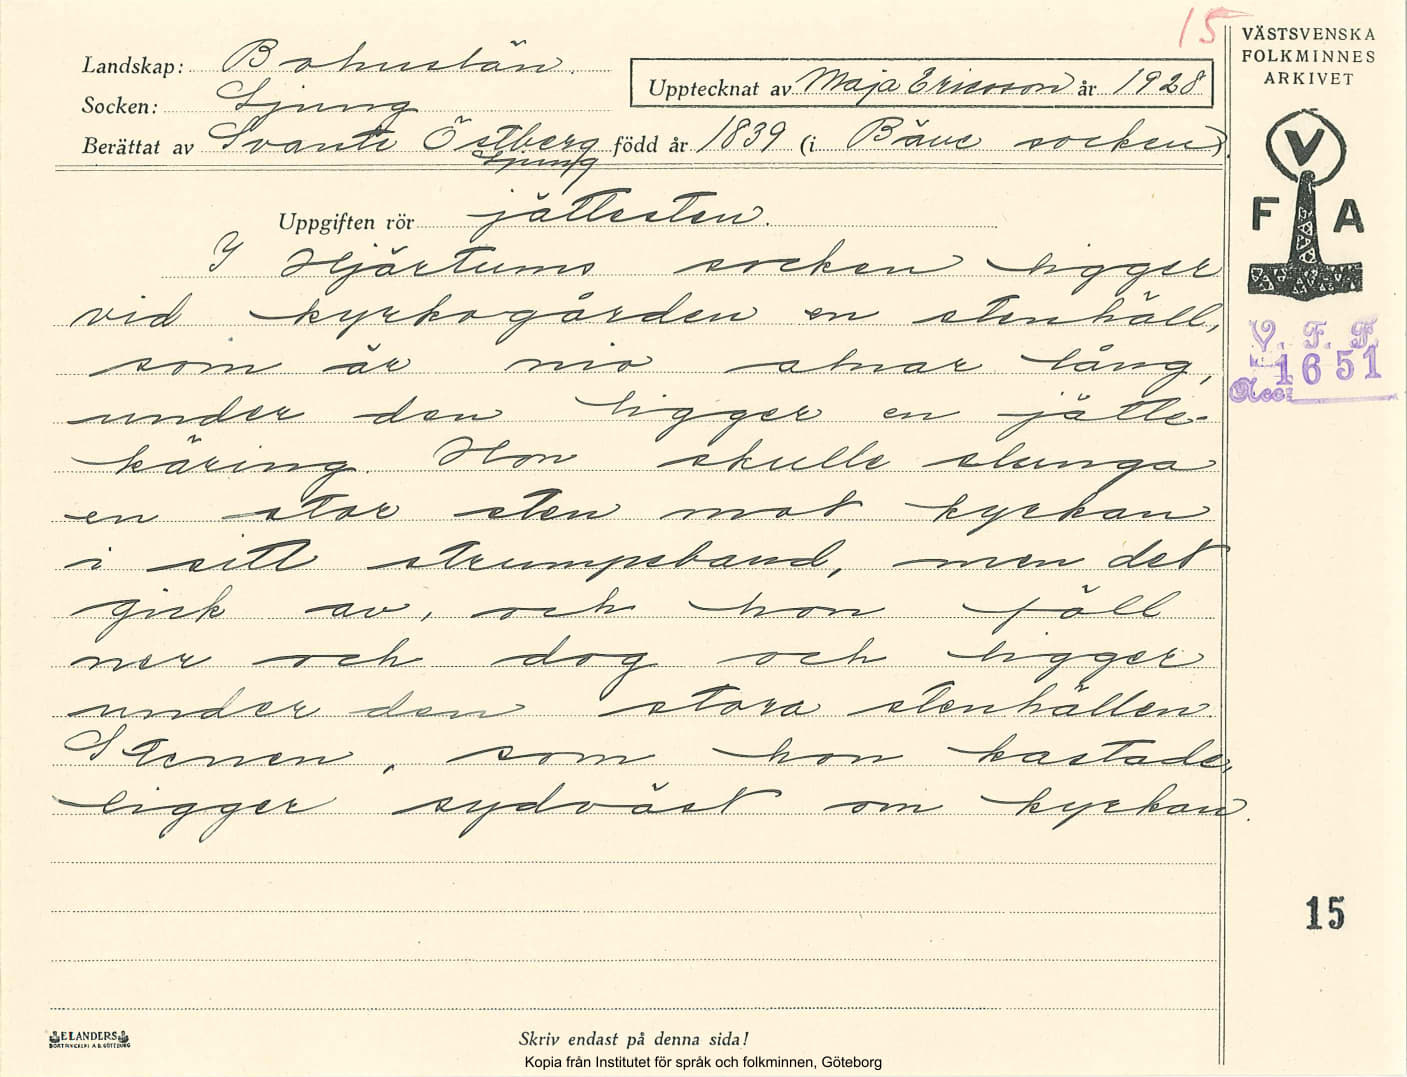 15
VÄSTSVENSKA
FOLKMINNES
ARKIVET
Landskap: Bohuslän.
Upptecknat av Maja Ericsson år 1928
Socken: Ljung
Berättat av Svante Östberg född år 1839 (i Bäve socken).
Ljung
V
F A
Uppgiften rör jättesten.
I Hjärtums socken ligger
vid kyrkogården en stenhäll,
som är nio alnar lång,
under den ligger en jätte-
käring. Hon skulle slunga
en stor sten mot kyrkan
i sitt strumpeband, men det
gick av, och hon föll
ner och dog och ligger
under den stora stenhällen.
Stenen, som hon kastade,
ligger sydväst om kyrkan.
V. F. F.
1651
Acc:
15
ELANDERS
BOKTRYCKERI A.B. GÖTEBORG
Skriv endast på denna sida!
Kopia från Institutet för språk och folkminnen, Göteborg